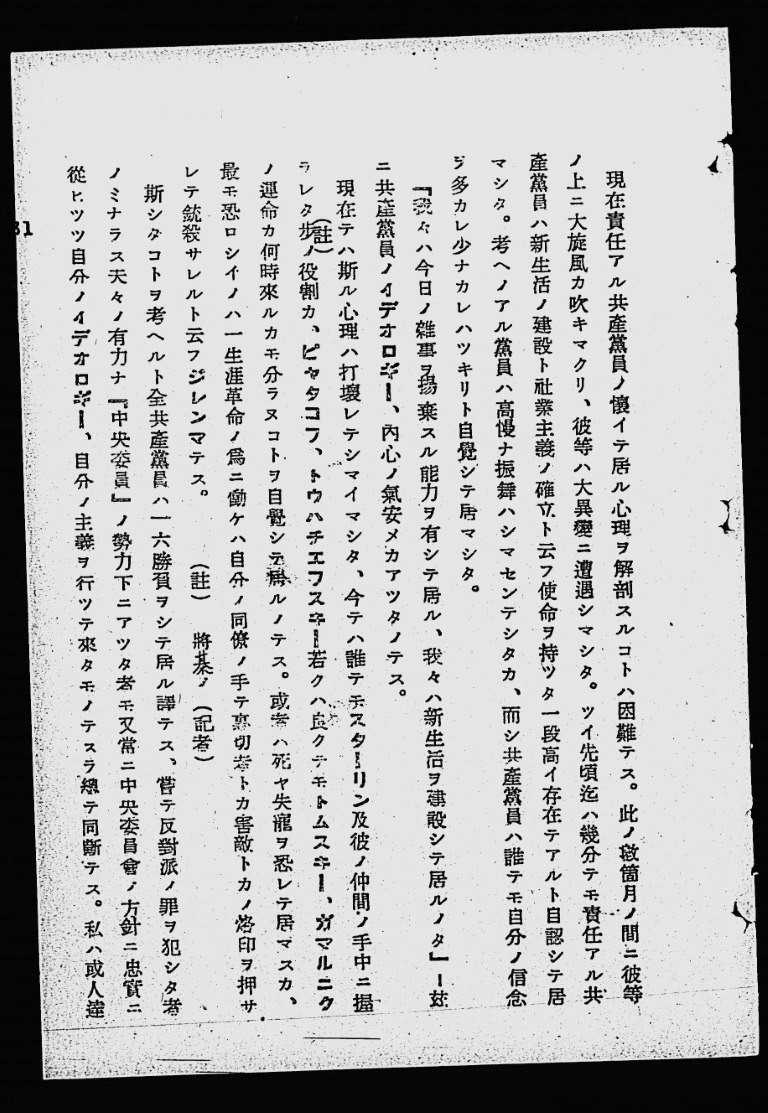 現在責任アル共產黨員ノ懷イテ居ル心理ヲ解剖スルコトハ困難テス。此ノ數箇月ノ間ニ彼等
ノ上ニ大旋風カ吹キマクリ、彼等ハ大異變ニ遭遇シマシタ。ツイ先頃迄ハ幾分テモ責任アル共
產黨員ハ新生活ノ建設ト社業主義ノ確立ト云フ使命ヲ持ツタ一段高イ存在テアルト自認シテ居
マシタ。考ヘノアル黨員ハ高慢ナ振舞ハシマセンテシタカ、而シ共產黨員ハ誰テモ自分ノ信念
ヲ多カレ少ナカレハツキリト自覺シテ居マシタ。
『我々ハ今日ノ雜事ヲ揚棄スル能力ヲ有シテ居ル、我々ハ新生活ヲ建設シテ居ルノタ』ー玆
ニ共產黨員ノイデオロギー、內心ノ氣安メカアツタノテス。
現在テハ斯ル心理ハ打壞レテシマイマシタ、今テハ誰テモスターリン及彼ノ仲間ノ手中ニ握
ラレタ步ノ役割カ、ピヤタコフ、トウハチエフスキー若クハ良クテモトムスキー、ガマルニク
(註)
ノ運命カ何時來ルカモ分ラヌコトヲ自覺シテ居ルノテス。或者ハ死ヤ失寵ヲ恐レテ居マスカ、
最モ恐ロシイノハ一生涯革命ノ爲ニ働ケハ自分ノ同僚ノ手テ裏切者トカ害敵トカノ烙印ヲ押サ
レテ銃殺サレルト云フジレンマテス。 (註) 將棊ノ (記者)
斯シタコトヲ考ヘルト全共產黨員ハ一六勝負ヲシテ居ル譯テス、嘗テ反對派ノ罪ヲ犯シタ者
ノミナラス夫々ノ有力ナ『中央委員』ノ勢力下ニアツタ者モ又當ニ中央委員會ノ方針ニ忠實ニ
從ヒツツ自分ノイデオロギー、自分ノ主義ヲ行ツテ來タモノテスラ總テ同斷テス。私ハ或人達
31